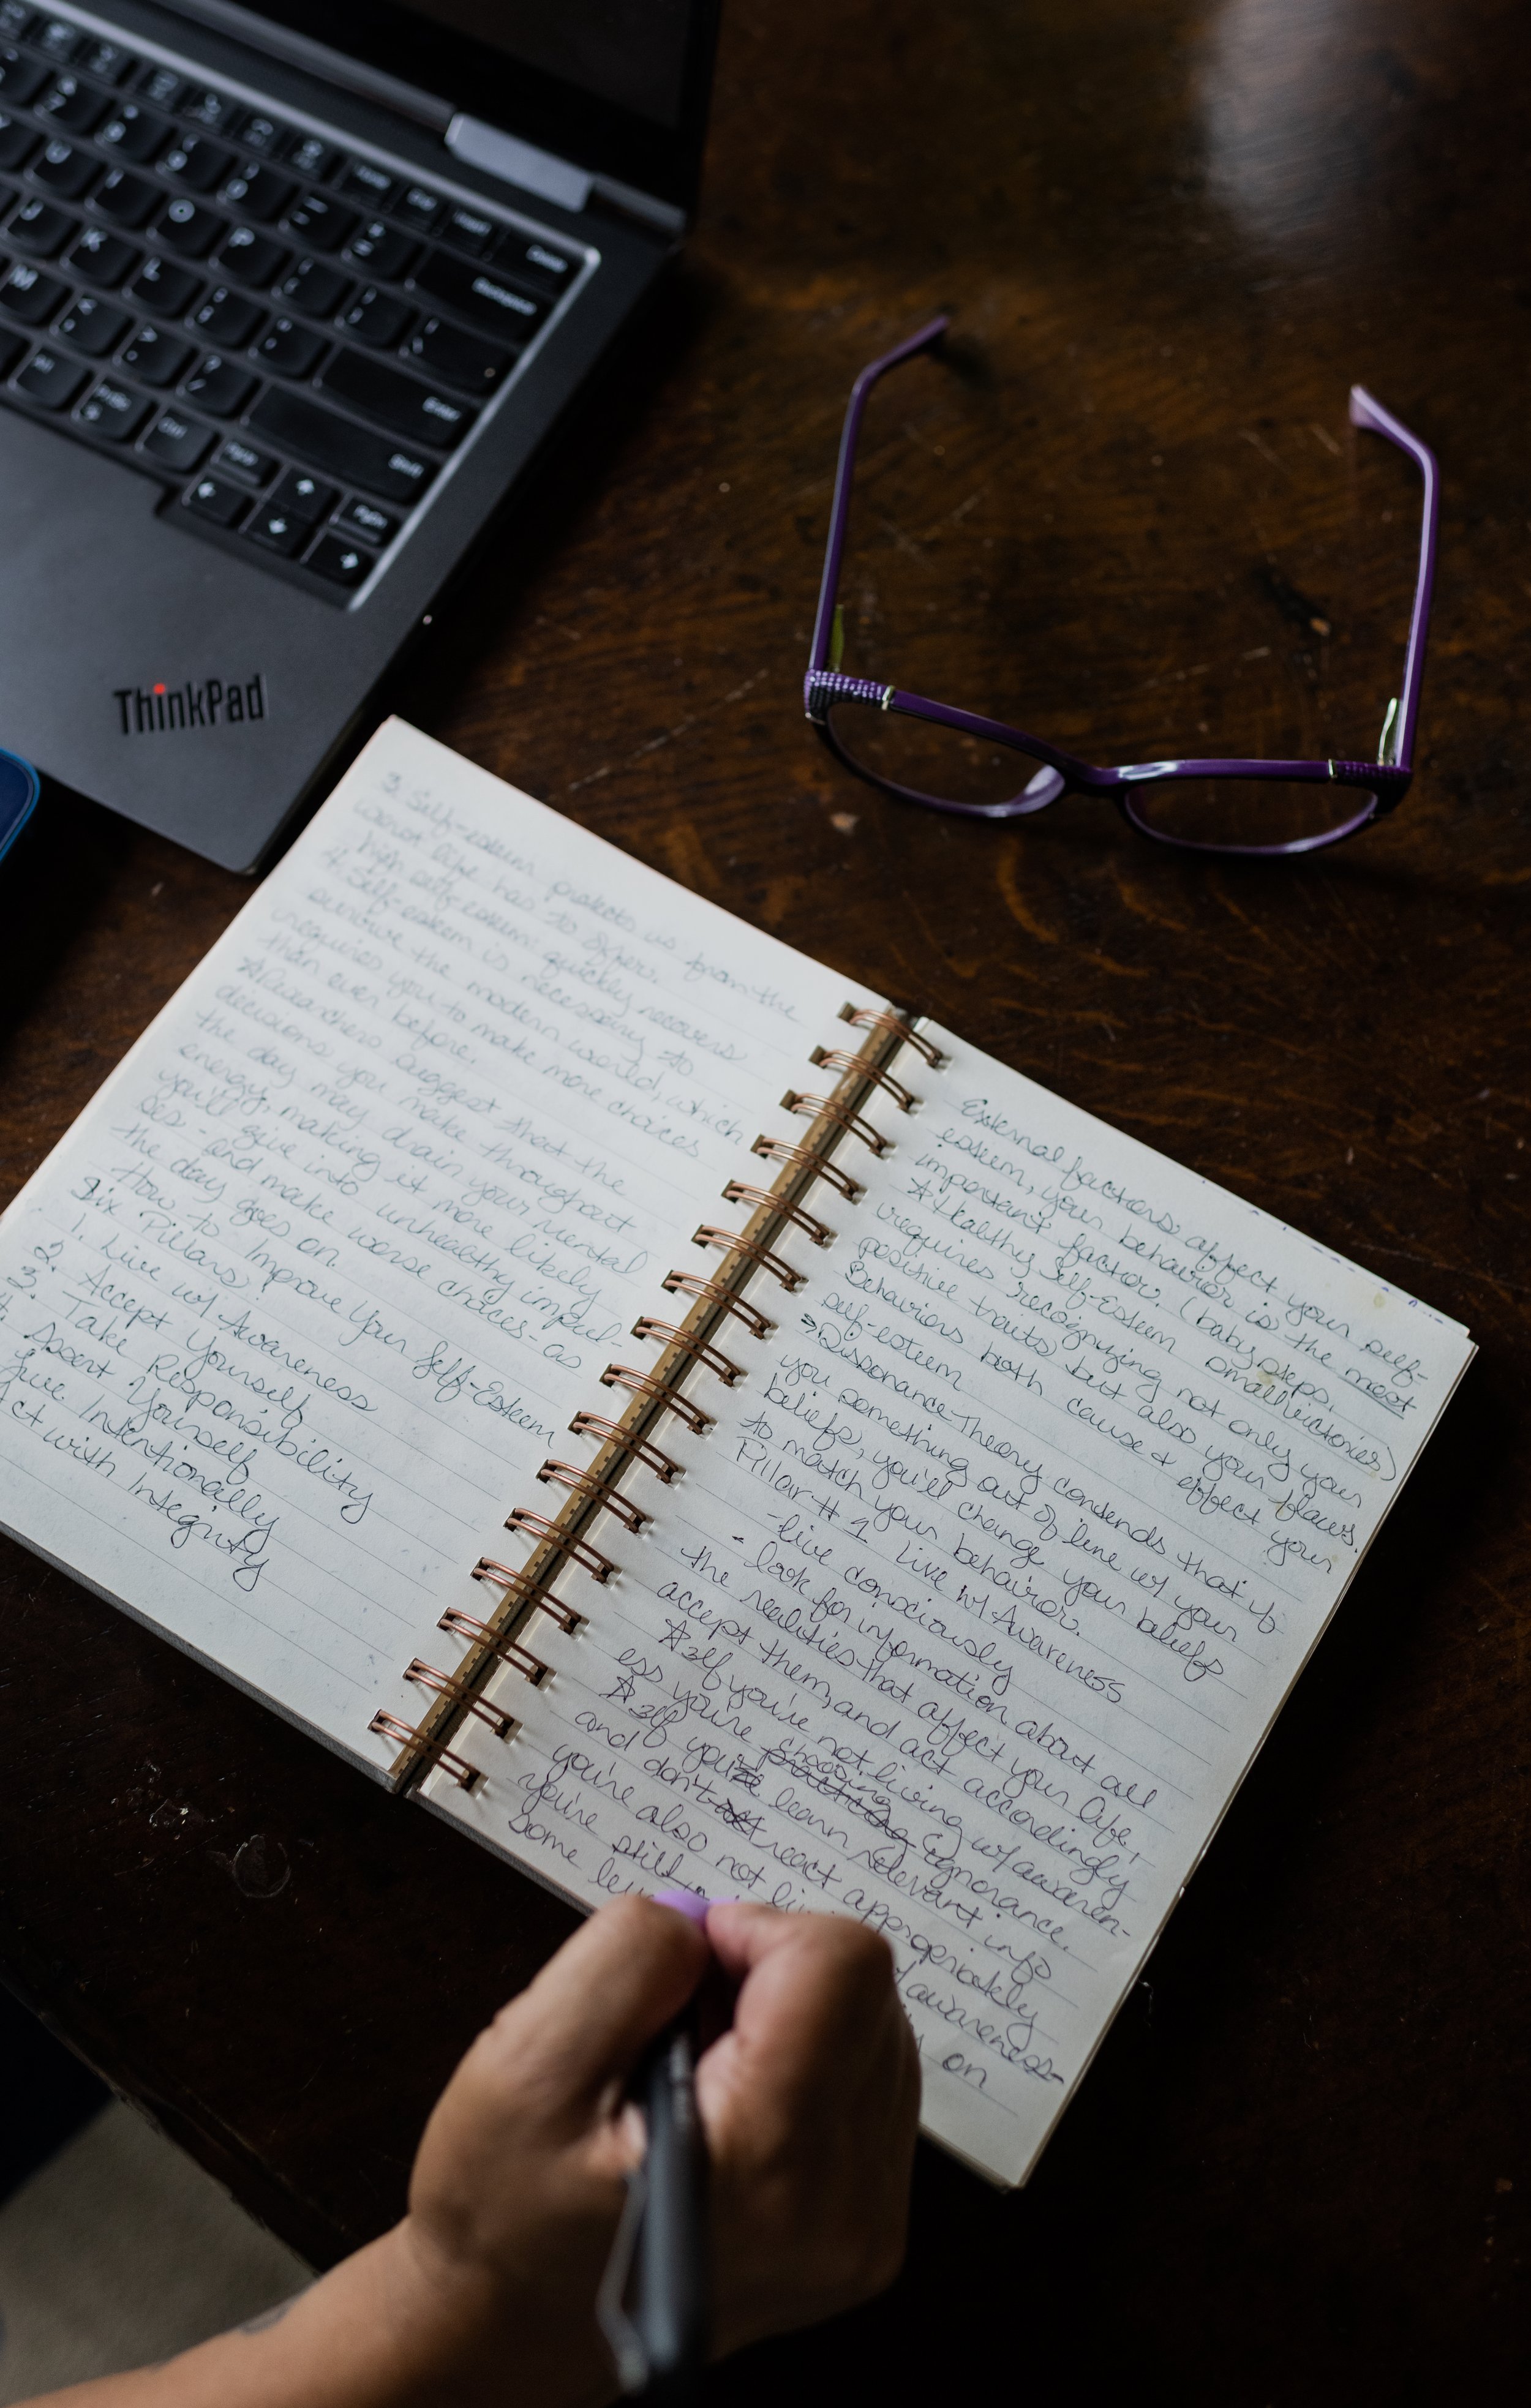 Backspace
Enter
Shift
Ctrl
PrtSc
PgUp
PgDn
ThinkPad
3. Self-esteem protects us from the
worst life has to offer.
high self-esteem: quickly recovers
4. Self-esteem is necessary to
survive the modern world, which
requires you to make more choices
than ever before.
☆Researchers suggest that the
decisions you make throughout
the day may drain your mental
energy, making it more likely
you'll give into unhealthy impul-
ses - and make worse choices - as
the day goes on.
How to Improve Your Self-Esteem
Six Pillars:
1. Live w/ Awareness
2. Accept Yourself
3. Take Responsibility
4. Assert Yourself
Live Intentionally
Act with Integrity
External factors affect your self-
esteem, your behavior is the most
important factor. (baby steps,
small victories)
☆Healthy Self-Esteem
requires recognizing not only your
positive traits but also your flaws.
Behaviors both cause & effect your
self-esteem
Dissonance Theory contends that if
you something out of line w/ your
beliefs, you'll change your beliefs
to match your behavior.
Pillar # 1 Live w/ Awareness
-live consciously
- look for information about all
the realities that affect your life,
accept them, and act accordingly
☆If you're not living w/ awaren-
ess you're choosing practicing ignorance.
☆If you learn relevant info
and don't act react appropriately
you're also not
w/ awareness-
you're still
on
some